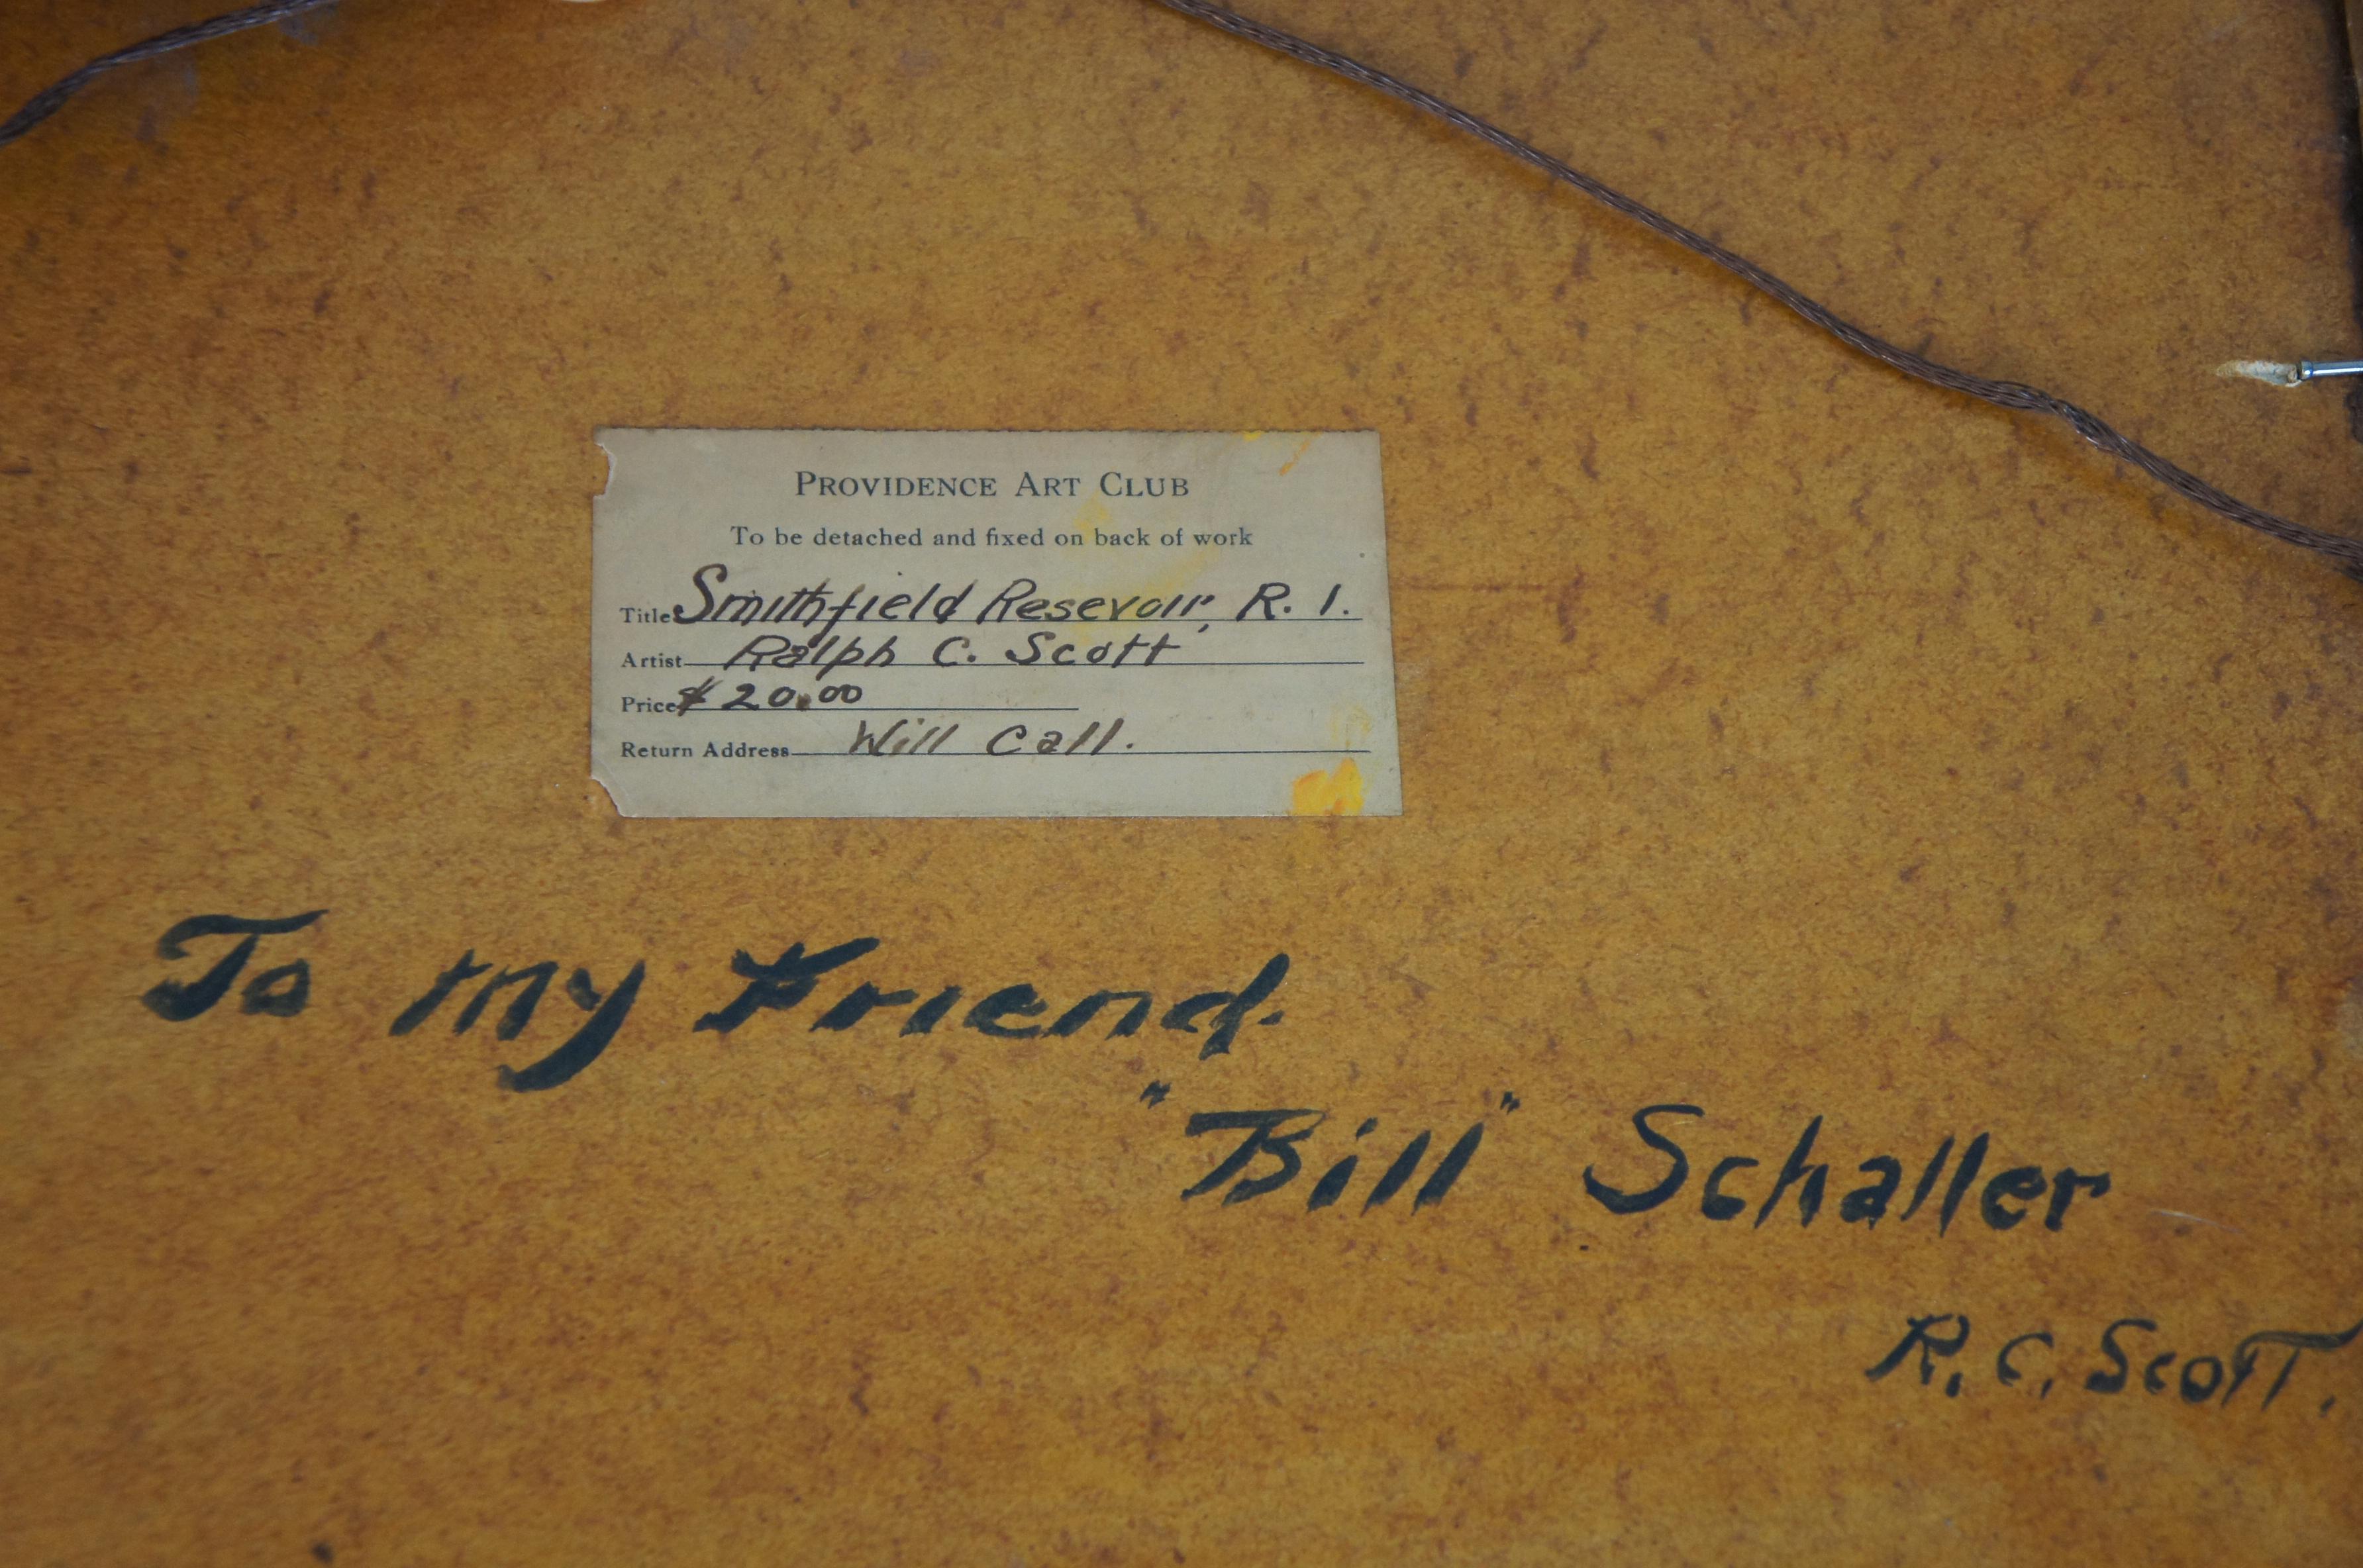 PROVIDENCE ART CLUB
To be detached and fixed on back of work
Title Smithfield Resevoir, R. I.
Artist Ralph C. Scott
Price $20.00
Return Address Will Call.
To my Friend.
"Bill" Schaller
R. C. Scott.